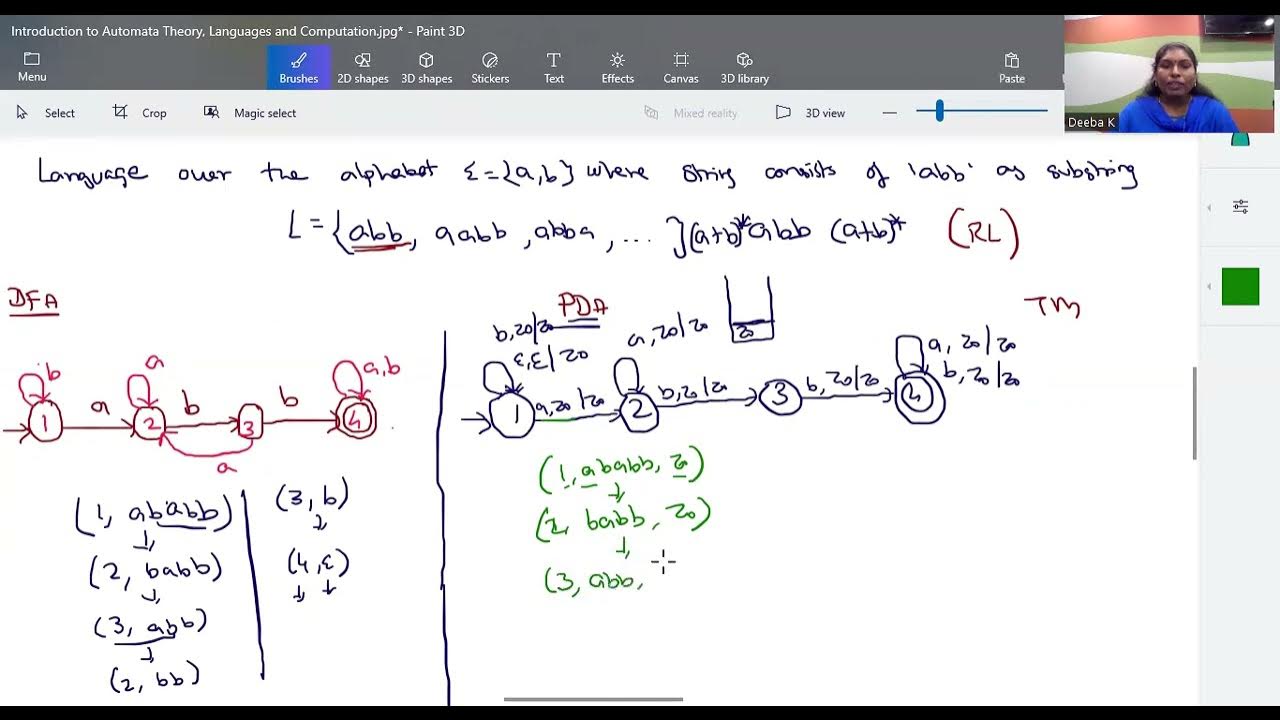 Introduction to Automata Theory, Languages and Computation.jpg* - Paint 3D
Menu
Brushes
2D shapes
3D shapes
Stickers
Text
Effects
Canvas
3D library
Paste
Select
Crop
Magic select
Mixed reality
3D view
Deeba K
Language over the alphabet Σ={a,b} where string consists of 'abb' as substring
L = {abb, aabb, abba, ... } (a+b)* abb (a+b)* (RL)
DFA
b
a
a
b
b
a,b
1
2
3
4
a
(1, ababb)
↓
(2, babb)
↓
(3, abb)
↓
(2, bb)
(3, b)
↓
(4, ε)
↓ ↓
PDA
z0
b,z0/z0
ε,ε/z0
a,z0/z0
a,z0/z0
b,z0/z0
b,z0/z0
a,z0/z0
b,z0/z0
1
2
3
4
(1, ababb, z0)
↓
(2, babb, z0)
↓
(3, abb,
TM